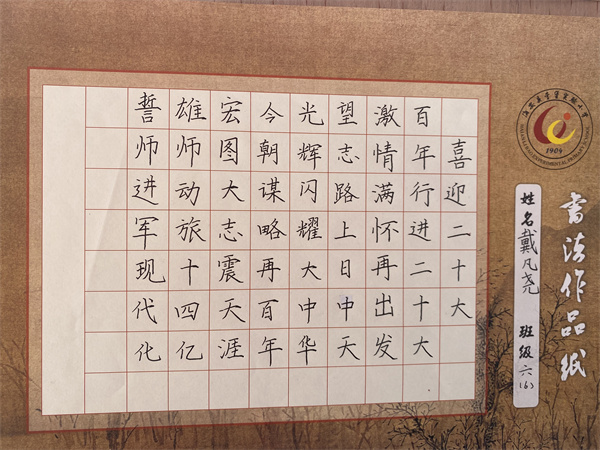 喜迎二十大
百年行进二十大
激情满怀再出发
望志路上日中天
光辉闪耀大中华
今朝谋略再百年
宏图大志震天涯
雄师动旅十四亿
誓师进军现代化
书法作品纸
姓名 戴凡尧 班级 六(6)
1904